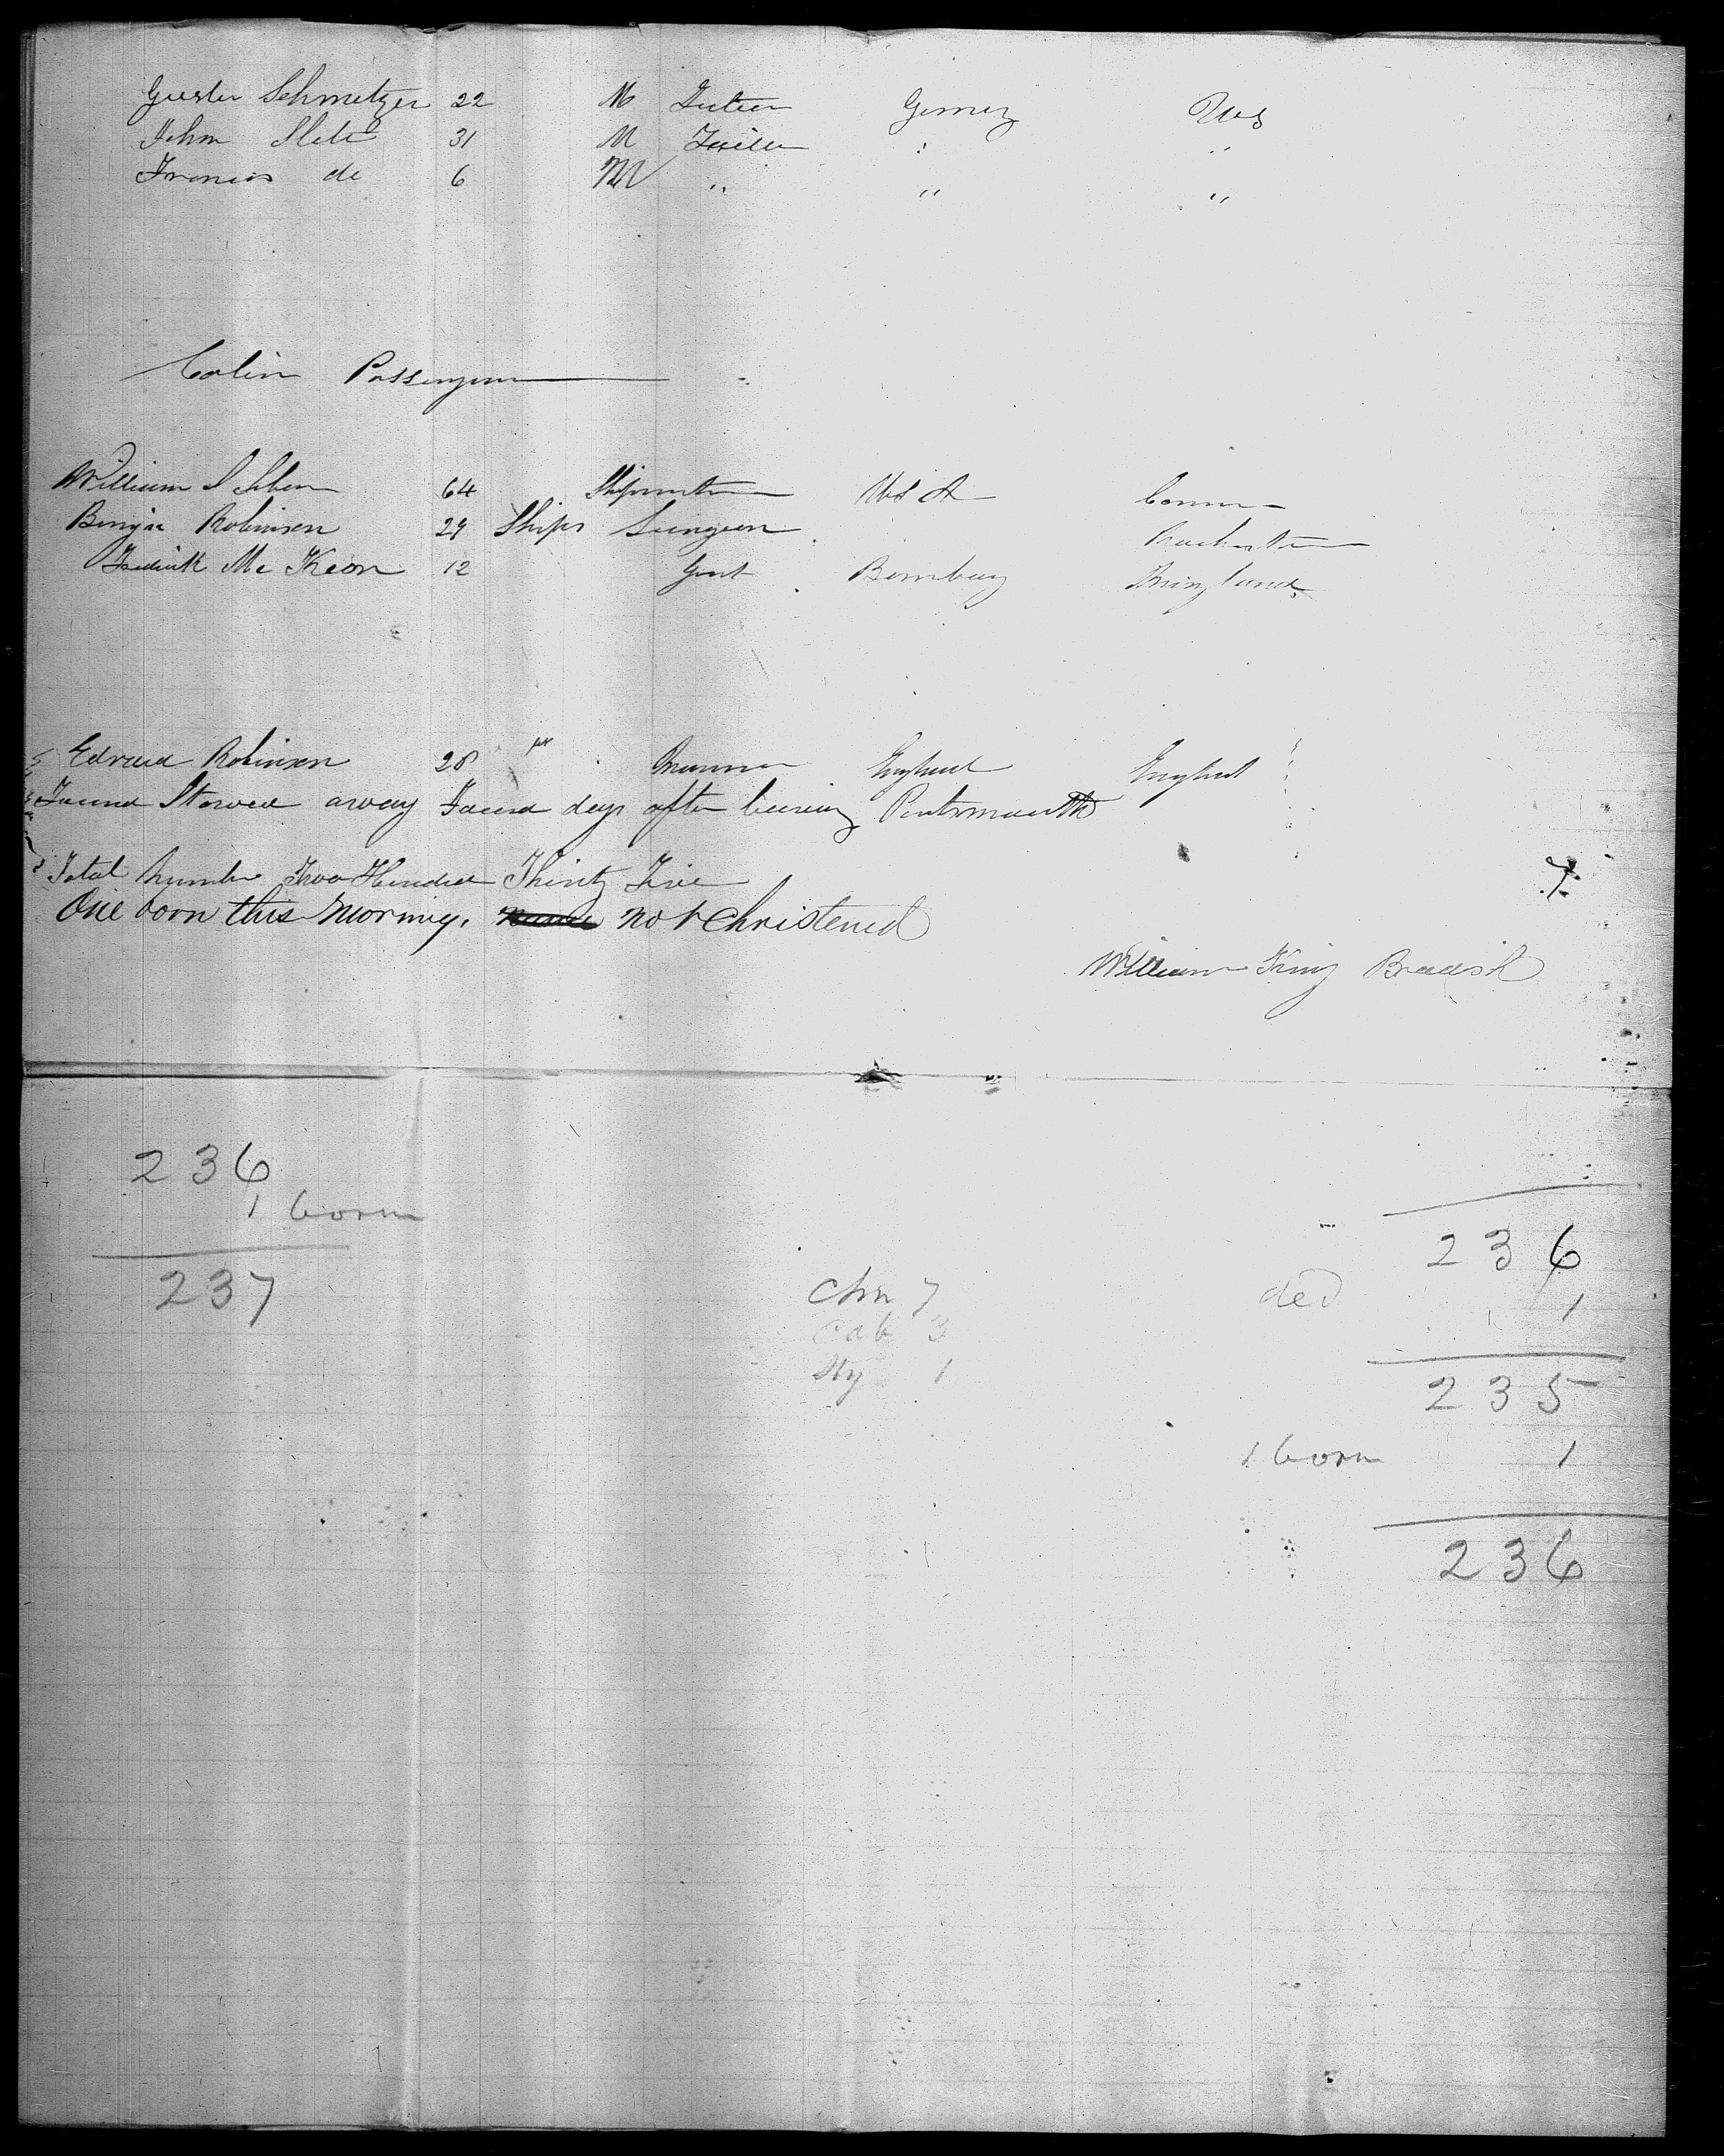 Guster Schmetzer 22 M
John 31 M
Francis do 6 M " " "
Cabin Passengers
William S 64 Shipmaster U S A Conn
Benjn Robinson 29 Ships Surgeon
Fredirick Mc Keon 12 Gent Bombay
Edward Robinson 28 England England
Found Stowed away days after leaving Portsmouth
Total Number Two Hundred Thirty Five
One born this morning. not Christened
William King Bradish
236
1 born
237
Chn 7
Cab 3
Stg 1
236
ded 1
235
1 born 1
236